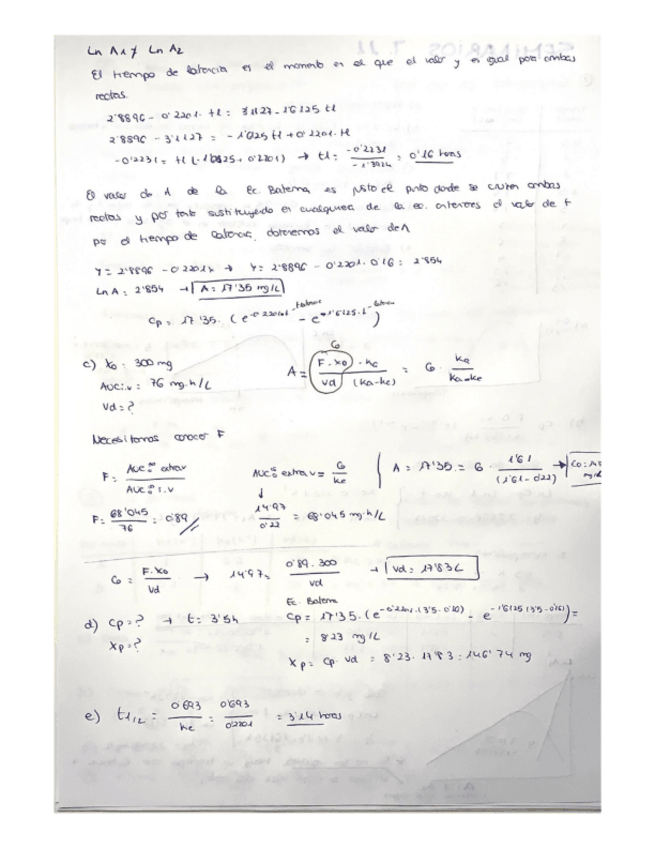 Ln A1 ≠ Ln A2
El tiempo de latencia es el momento en el que el valor y es igual para ambas
rectas.
2'8896 - 0'2201·t1 = 3'1127 - 1'6125 t1
2'8896 - 3'1127 = -1'6125 t1 + 0'2201·t1
-0'2231 = t1 (-1'6125 + 0'2201) → t1 = -0'2231 / -1'3924 = 0'16 horas
El valor de A de la Ec. Bateman es justo el punto donde se cruzan ambas
rectas y por tanto sustituyendo en cualquiera de la ec. anteriores el valor de t
por el tiempo de latencia, obtenemos el valor de A
Y = 2'8896 - 0'2201x → Y = 2'8896 - 0'2201·0'16 = 2'854
Ln A = 2'854 → A = 17'35 mg/L
Cp = 17'35·(e^-0'2201·t-tlatencia - e^-1'6125·t-latencia)
c) X0 = 300 mg
AUC i.v = 76 mg·h/L
Vd = ?
C0
A = F·X0·ka / Vd (ka-ke) = C0 · ka / ka-ke
Necesitamos conocer F
F = AUC0∞ extrav / AUC0∞ i.v
AUC0∞ extrav = C0 / ke
A = 17'35 = C0 · 1'61 / (1'61-0'22) →
F = 68'045 / 76 = 0'89
↓ 14'97 / 0'22 = 68'045 mg·h/L
C0 = F·X0 / Vd → 14'97 = 0'89·300 / Vd → Vd = 17'83 L
Ec. Bateman
d) Cp = ? → t = 3'5h Cp = 17'35·(e^-0'2201(3'5-0'16) - e^-1'6125(3'5-0'16)) =
Xp = ?
= 8'23 mg/L
Xp = Cp·Vd = 8'23·17'83 = 146'74 mg
e) t1/2 = 0'693 / ke = 0'693 / 0'2201 = 3'14 horas